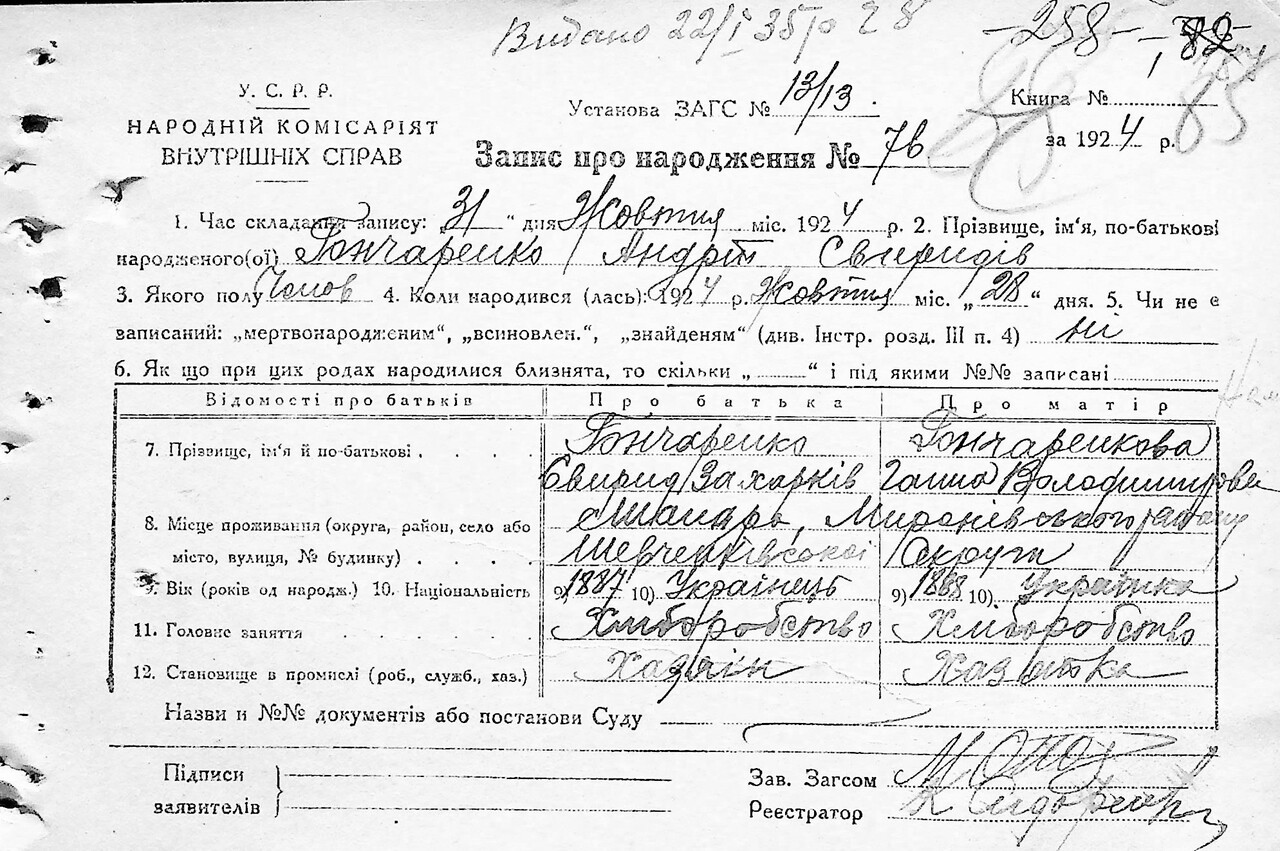 Видано 22/I 35 р 28
-258-
У. С. Р. Р.
НАРОДНІЙ КОМІСАРІЯТ
ВНУТРІШНІХ СПРАВ
Установа ЗАГС № 13/13.
Книга №
за 1924 р.
85
Запис про народження № 7в
1. Час складання запису: 31 “ дня Жовтня міс. 1924 р. 2. Прізвище, ім'я, по-батькові
народженого(ої) Гончаренко Андрій Свиридів
3. Якого полу Чолов 4. Коли народився (лась): 1924 р. Жовтня міс. „28“ дня. 5. Чи не є
записаний: „мертвонародженим“, „всиновлен.“, „знайденям“ (див. Інстр. розд. III п. 4) ні
6. Як що при цих родах народилися близнята, то скільки „ “ і під якими №№ записані
Відомості про батьків Про батька Про матір
7. Прізвище, ім'я й по-батькові Гончаренко Гончаренкова
Свирид Захарків Ганна Володимирова
8. Місце проживання (округа, район, село або місто, вулиця, № будинку) Миронівського району
Шевченківської Округи
9. Вік (років од народж.) 10. Національність 9) 1887 10) Українець 9) 1888 10) Українка
11. Головне заняття Хліборобство Хліборобство
12. Становище в промислі (роб., служб., хаз.) Хазяїн Хазяйка
Назви и №№ документів або постанови Суду
Підписи
заявителів
Зав. Загсом
Реєстратор